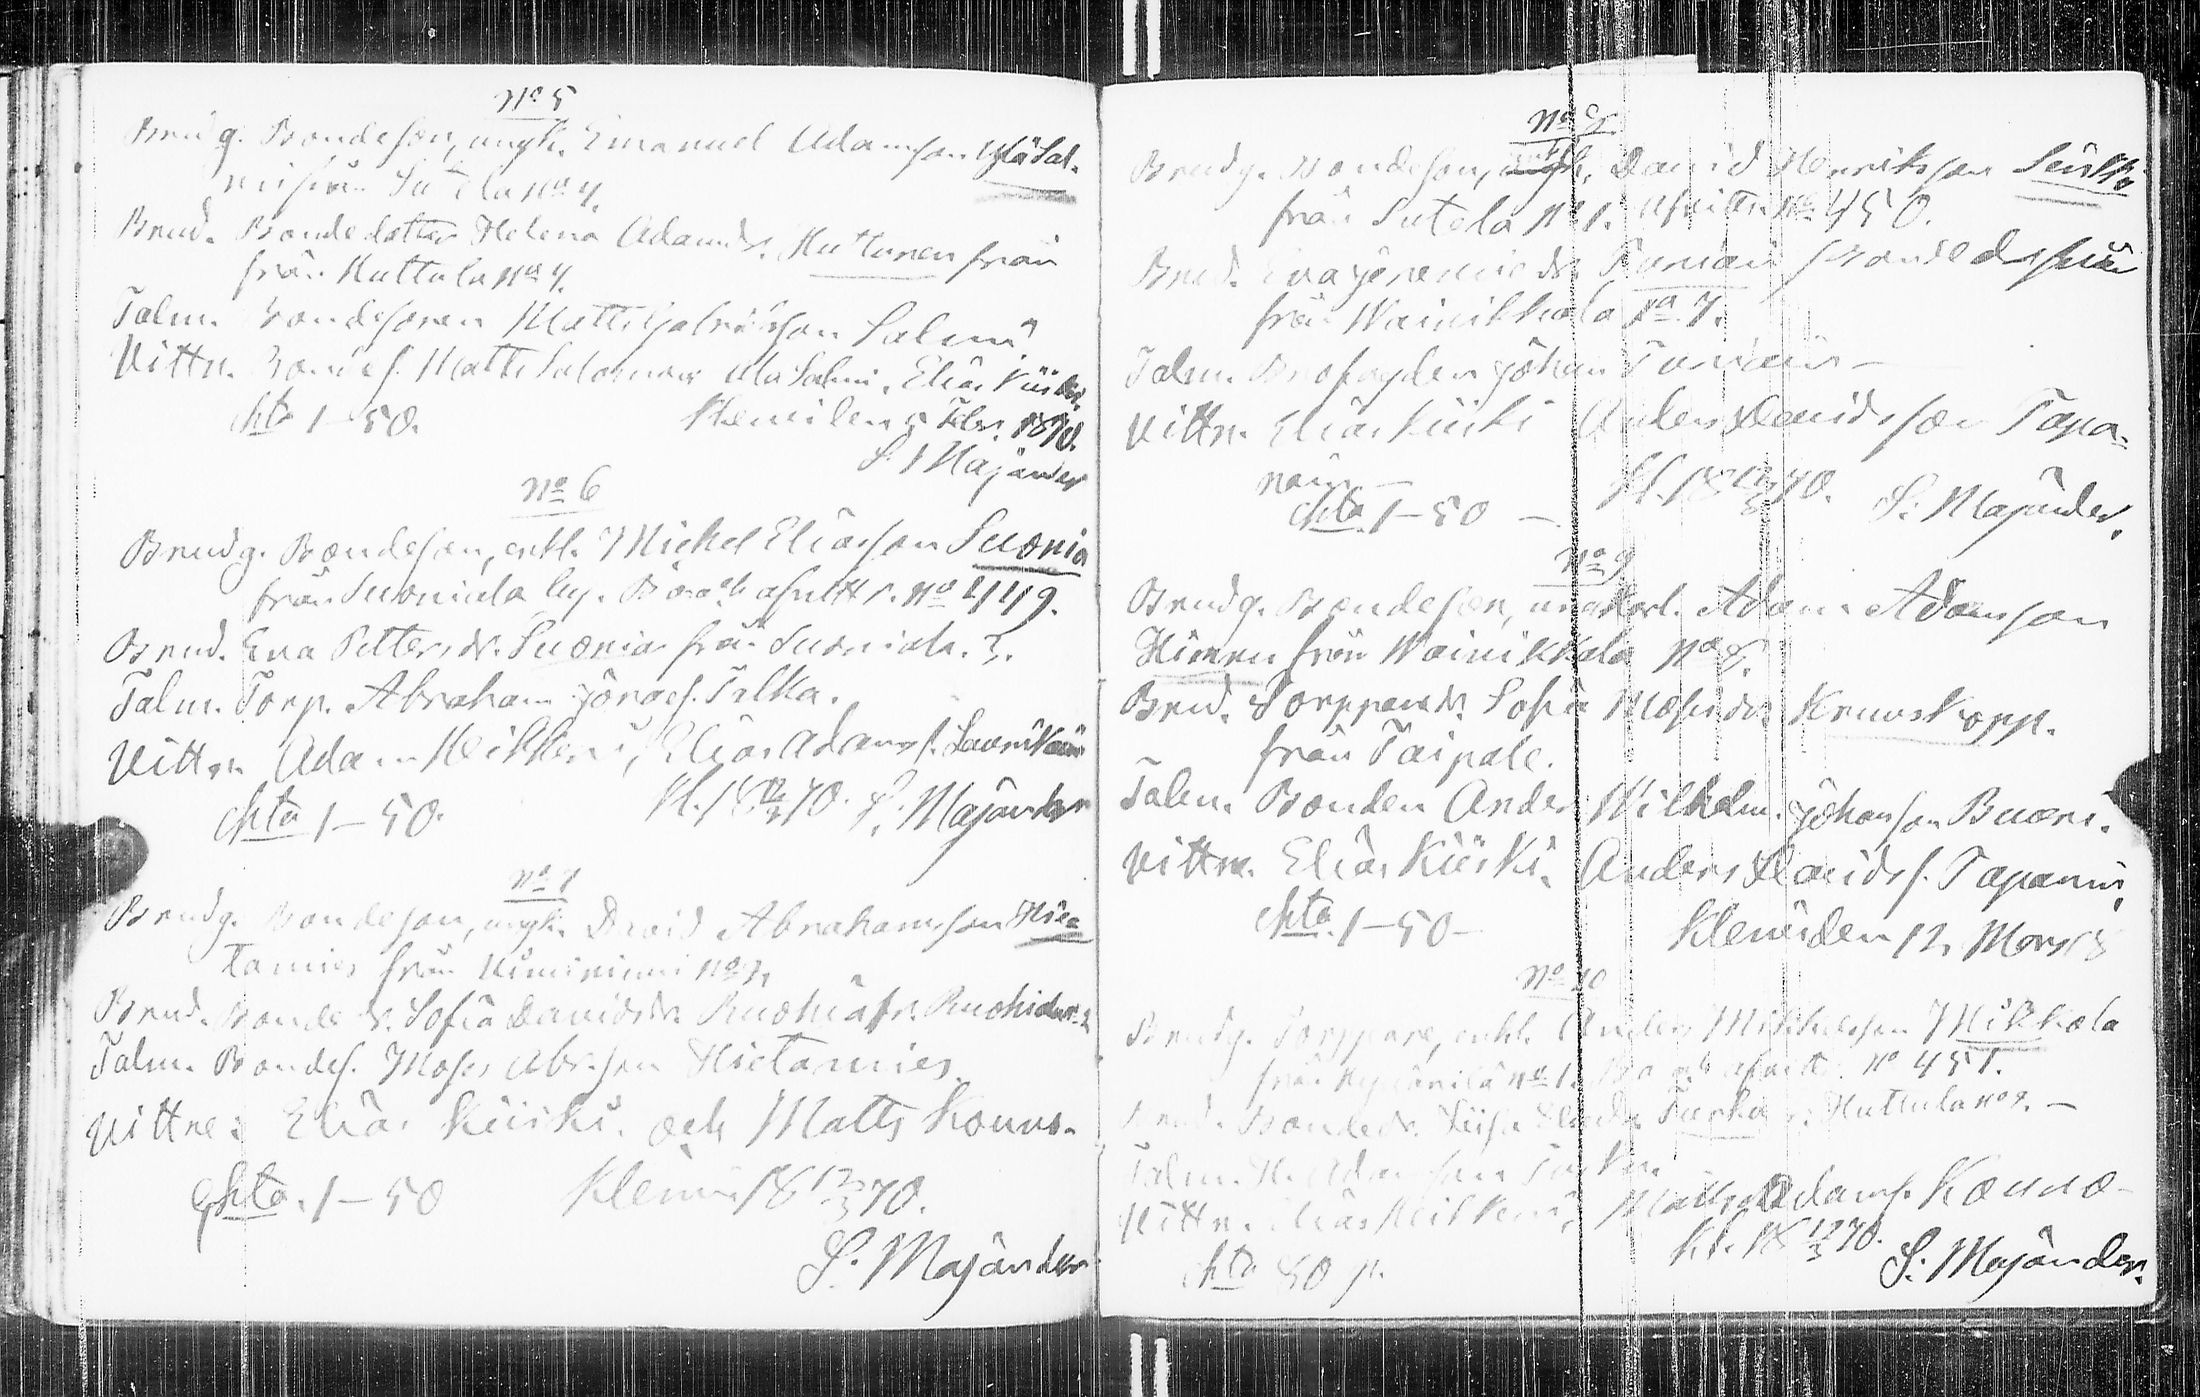 No 5
Brudg. Bondeson, ungk. Emanuel Adamson Ylä Sal-
mi från Sutela No 4.
Brud. Bondedotter Helena Adamsdr. Huttunen från
från Huttula No 4.
Talm. Bondesonen Matts Gabrielsson Salmi
Vittn. Bondes. Matts Salomons Ala Salmi, Elias Kiiski.
Chta 1–50. Klemis den 5 Febr. 1870.
S. Majander
No 6
Brudg. Bondeson, enkl. Michel Eliasson Suonia
från Suoniala by. Bouppt. afvittr. No 449.
Brud. Eva Pettersdr. Suonia från Suoniala. 3.
Talm. Torp. Abraham Jöransf. Tilka.
Vittn. Adam Heikkeri, Elias Adamsf. Laurikain
Chta 1–50. Kl. 18 12/3 70. S. Majander
No 7
Brudg. Bondeson, ungk. David Abrahamsson Hie-
tamies från Kiminiemi No 2,
Brud. Bonde dr. Sofia Davidsdr. Ruohiain fr. Ruohiala No 2
Talm. Bondes. Moses Abr.son Hietamies.
Vittne: Elias Kiiski. och Matts Kouvo.
Chta. 1–50 Klemis 18 12/3 70.
S. Majander
No 8
Brudg. Bondeson, enkl. David Henriksson Seuskki
från Sutela No 1. Afvittr. No 450.
Brud. Eva Jeremiædr. Parviain Bondedr från
från Wainikkala No 7.
Talm. Brofogden Johan Parviain –
Vittn. Elias Kiiski Anders Davidsson Tapa-
nain –
Chta. 1–50 – Kl. 18 12/3 70. S. Majander.
No 9
Brudg. Bondeson, ungkarl. Adam Adamson
Himmi från Wainikkala No 8.
Brud. Torpparedr. Sofia Mosesdr. Kruuskopp.
från Taipale.
Talm. Bonden Anders Wilhelm Johansson Buori.
Vittn. Elias Kiiski. Anders Davidsf. Tapanin,
Chta. 1–50 – Klemis den 12, Mars 18
No 10
Brudg. Torppare, enkl. Anders Mikkelsson Mikkola
från No 1. Bo och afvittr. No 451.
Brud. Bondedr. Liisa Eliædr. Turkia fr. Huttula No 2. –
Talm. H. Adamsson Turkia.
Vittn. Elias Heikkeri, Matts Adamsf. Kouvo –
Chta 80 p. Kl. 18 12/3 70. S. Majander.